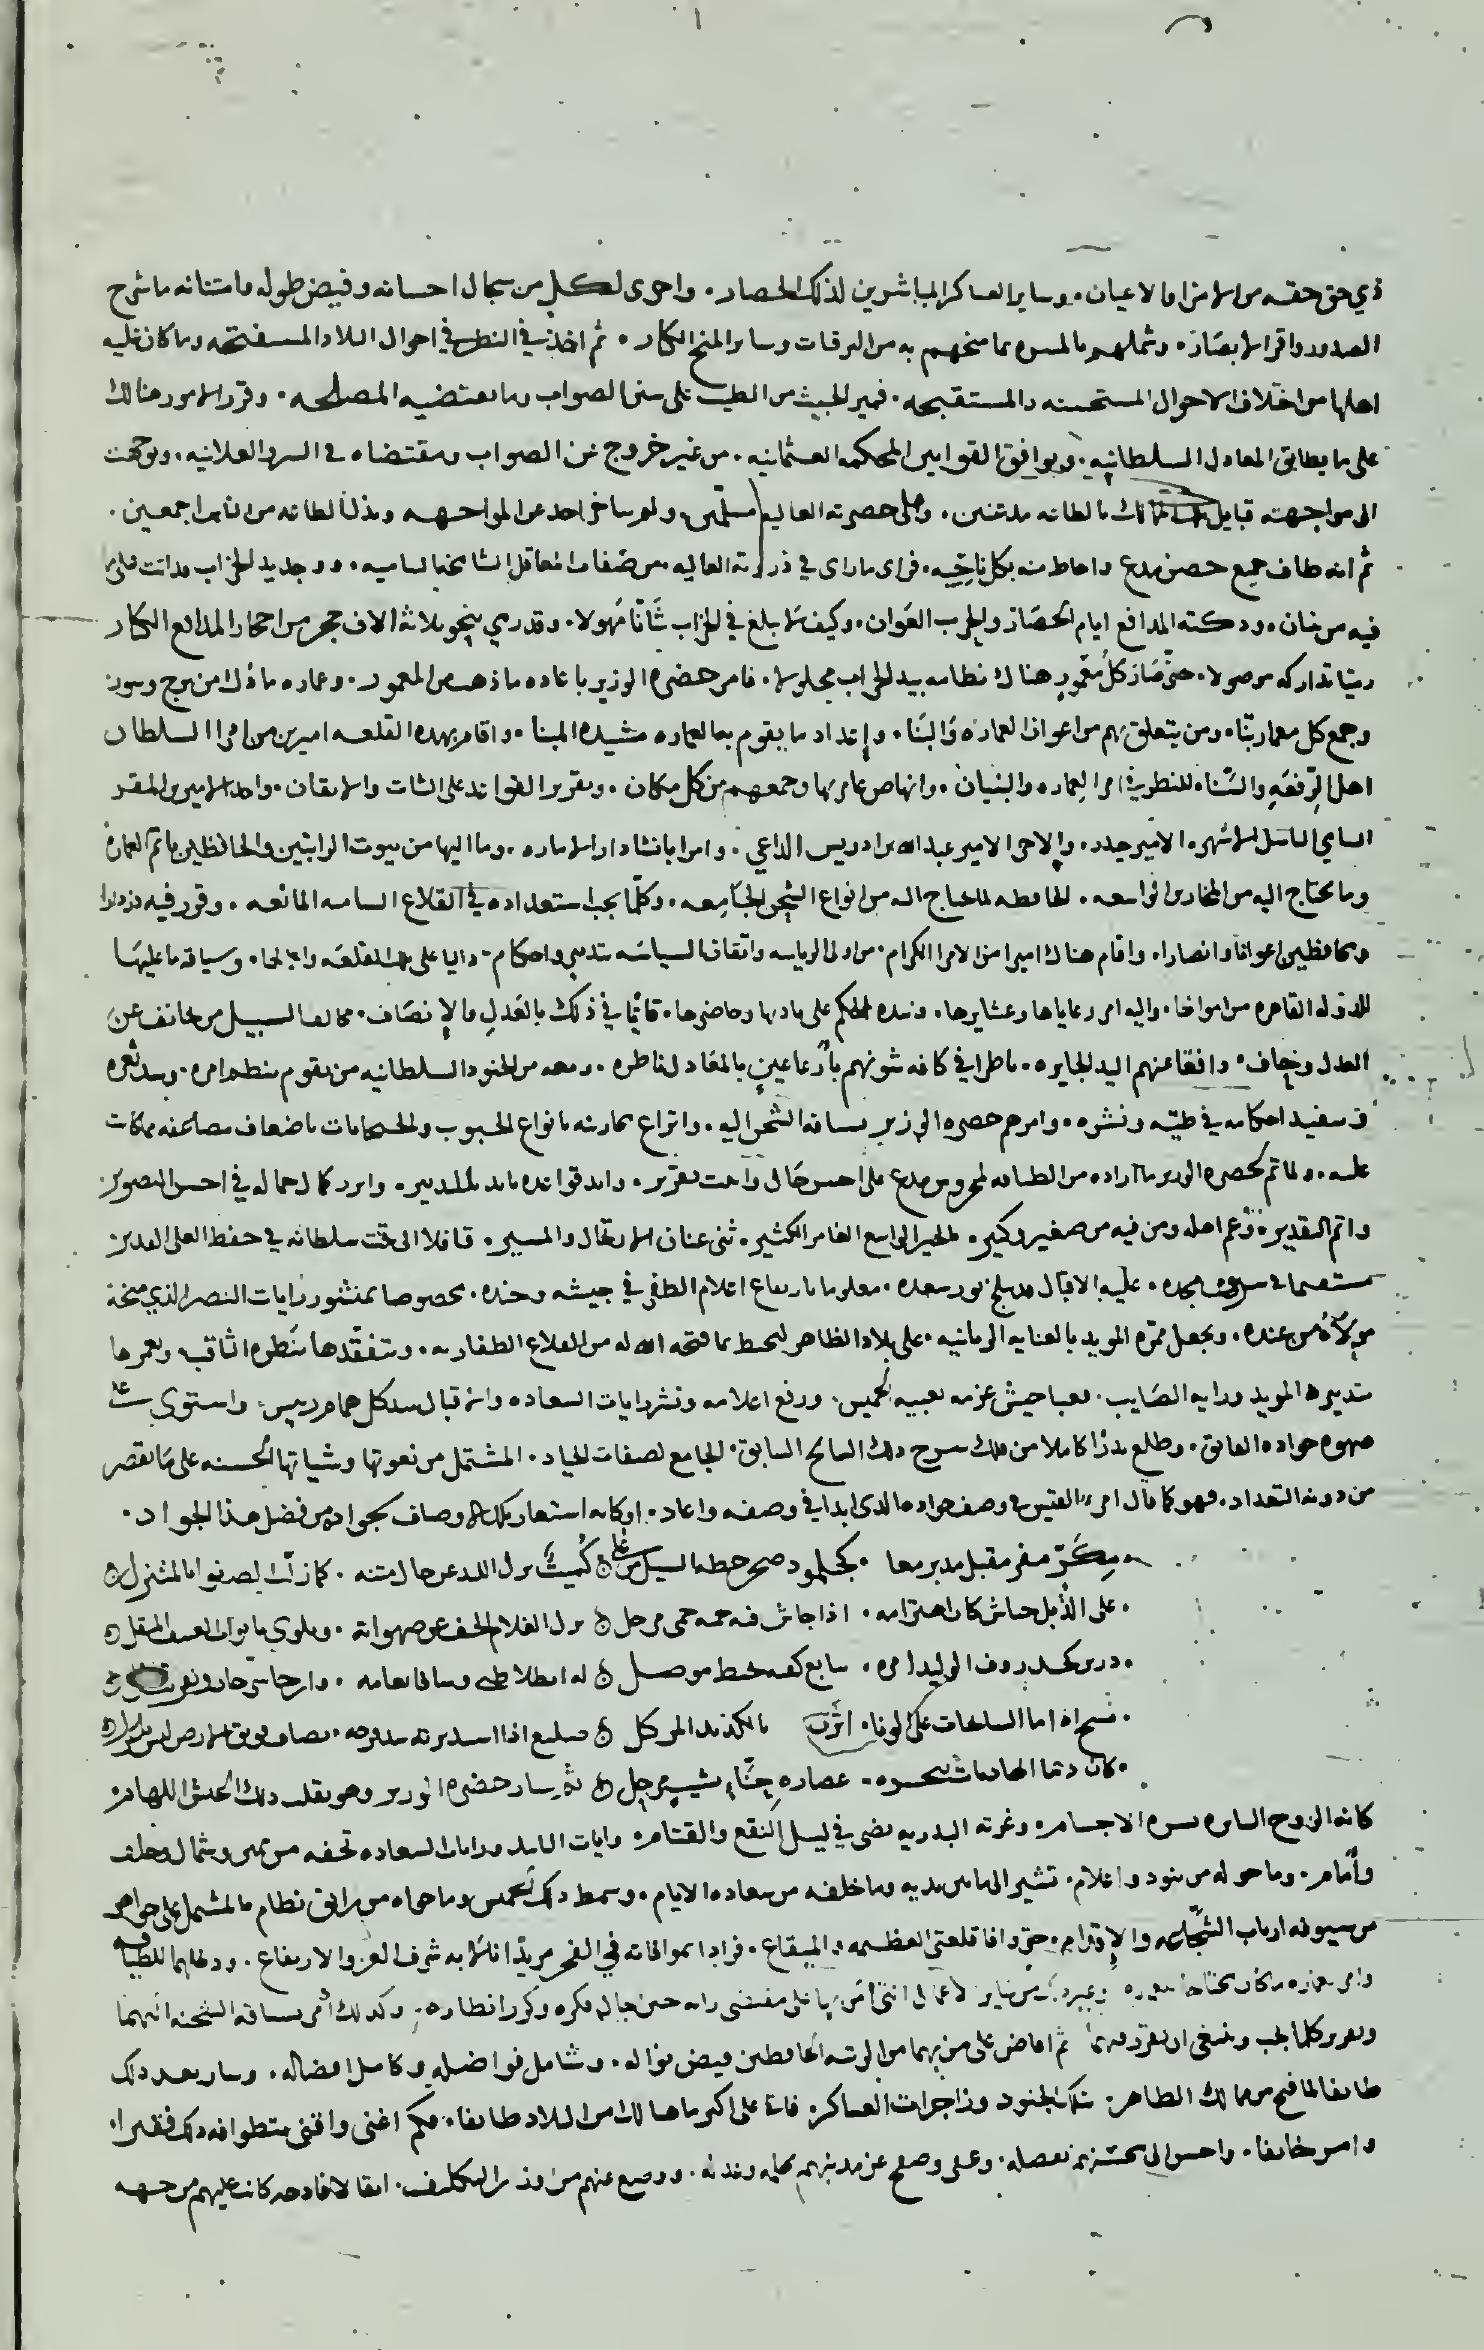 ذي حق حقه من الامرا والاعيان. وساير العساكر المباشرين لذلك الحصار. واجرى لكل من سجال احسانه وفيض طوله وامتنانه ما شرح
الصدور واقر الابصار. وشملهم بما منحهم به من الترقيات وساير المنح الكبار. ثم اخذ في النظر في احوال البلاد المستفتحه وما كان عليه
اهلها من اختلاف الاحوال المستحسنه والمستقبحه. فميز الخبيث من الطيب على سنن الصواب وما تقتضيه المصلحه. وقرر الامور هنالك
على ما يطابق المعادل السلطانيه. ويوافق القوانين المحكمه العثمانيه. من غير خروج عن الصواب ومقتضاه في السر والعلانيه. وتوجهت
الى مواجهته قبايل تلك الممالك بالطاعه مذعنين. وعلى حضرته العاليه مسلمين ولم يتاخر احد عن المواجهه وبذل الطاعه من الناس اجمعين.
ثم انه طاف جميع حصن مدع واحاط منه بكل ناحيه. فراى ما راى في ذروته العاليه. من صفات المعاقل الشامخه الساميه. ووجد يد الخراب قد اتت على ما
فيه من مبان. ودكته المدافع ايام الحصار والحرب العوان. وكيف لا وقد بلغ في الخراب شانا مهولا. وقد رمي بنحو ثلاثة الاف حجر من احجار المدافع الكبار
رميا تداركه موصولا. حتى صار كل معمور هناك نظامه بيد الخراب محلولا. فامر حضرة الوزير باعاده ما ذهب من المعمور. وعماره ما دك من برج وسور
وجمع كل معمار بنّاء ومن يتعلق بهم من اعوان العمارة والبنا. وإعداد ما يقوم به العماره مشيده المبنا. واقام بهذه القلعه اميرين من امرا السلطان
اهل الرفعه والسناء للنظر في امر العماره والبنيان. وانهاض عامريها وجمعهم من كل مكان. وتقرير القواعد على الثبات والاتقان. واحد الاميرين المقر
السامي الامير حيدر. والاخر الامير عبد الله بن ادريس الداعي. وامرا بانشاء دار الاماره. وما اليها من بيوت الراتبين والحافظين ما تم العمارة
وما يحتاج اليه من المخازن الواسعه. الحافظه لما يحتاج اليه من انواع الشحن الجامعه. وكلما يجب استعداده في القلاع الساميه المانعه. وقرر فيه
ومحافظين اعوانا وانصارا. واقام هناك اميرا من الامرا الكرام. من اولي الرياسه واتقان السياسه بتدبير واحكام. واليا على هذه القلعه واعمالها. وسياقة ما عليها
للدوله القاهره من اموالها. واليه امر رعاياها وعشايرها. وبيده الحكم على باديها وحاضرها. قائما في ذلك بالعدل والإنصاف. مخالفا لسبيل من جانف عن
العدل وحاف. دافعا عنهم اليد الجايره. ناظرا في كافه شونهم بأرعا عين بالمعادل ناظره. ومعه من الجنود السلطانيه من يقوم بنظم امره. ويسد ثغره
في تنفيذ احكامه في طيّه ونشره. وامرهم حضره الوزير بسياقه الشحن اليه. واتراع مخازنه بانواع الحبوب والطعامات باضعاف مضاعفه مما كانت
عليه. ولما تم لحضره الوزير ما اراده من احسن حال واثبت تقرير. وابرز كمال جماله في احسن التصوير
واتم التقدير. وعم اهله ومن فيه من صغير وكبير. بالخير الواسع الغامر الكثير. ثنى عنان الارتحال والمسير. قافلا الى تخت سلطانه في حفظ العلى القدير
عليه الاقبال نور سعده. معلوما بارتفاع اعلام الظفر في جيشه وجنده. مخصوصا بمنشور رايات النصر الذي منحة
مولاه من عنده. وجعل ممره المويد بالعنايه الربانيه. على بلاد الظاهر ليحيط بما فتحه الله له من القلاع الظفاريه. ويتفقدها بنظره الثاقب ويعمرها
بتدبيره المويد ورايه الصايب. فعبا جيش عزمه تعبيه الخميس. ورفع اعلامه ونشر رايات السعاده والاقبال بيد كل همام رييس. واستوى على
صهوه جواده الفايق. وطلع بدرا كاملا من فلك سرج ذلك السابح السابق. الجامع لصفات الجياد. المشتمل من نعوتها وشياتها الحسنه على ما يقصر
من دونه التعداد. فهو كما قال امرء القيس في وصف جواده الذي ابدا في وصفه واعاد. او كانه استعار تلك الاوصاف لجواده من فضل هذا الجواد.
مِكَرّ مفر مقبل مدبر معا. كجلمود صخر حطه السيل من عل ه كُمَيت يزل اللبد عن حال متنه. كما زلت الصفوا بالمتنزل ه
على الذبل جياش كان اهتزامه. اذا جاش فيه حميه غلي مرجل ه يزل الغلام الخف عن صهواته. ويلوي باثواب العنيف المثقل ه
درير كخذروف الوليد امره. تتابع كفيه بخيط موصل ه له ايطلا ظبي وساقا نعامه. وارخا سرحان وتقريب تتفل ه
مسح اذا ما السابحات على الونا. اثرن بالكديد المركل ه ضليع اذا استدبرته سد فرجه. بضاف فويق الارض ليس باعزل ه
كان دما الهاديات بنحره. عصارة حنّاء بشيب مرجل ه ثم سار حضره الوزير وهو بقلب ذلك الجيش اللهام
كانه الروح الساري الاجسام. وغرته البدريه تضي في ليل النقع والقتام. وايات التاييد ورايات السعاده تحفه من يمين وشمال وخلف
وأمام. وما حوله من بنود واعلام. تشير الى ما بين يديه وما خلفه من سعاده الايام. وسمط ذلك الخميس وما حواه من رايق نظام. المشتمل على جواهر
من سيوف ارباب الشجاعه والإقدام. حتى وافا قلعتي العظيمه والميقاع. فزادا بموافاته في الفخر مزيدا نالا به شرف العز والارتفاع.
وامر بعمارة ما كان محتاجا على مقتضى رايه حين اجال فكره وكرر انظاره. وكذلك أمر بسياقه الشحنه اليهما
وتقرير كلما يجب وينبغي ان يقرر فيهما ثم افاض على من بهما من الرتبه الحافظين فيض نواله. وشامل فواضله وكامل افضاله. وسار بعد ذلك
طايفا لما فتح من ممالك الظاهر. بتلك الجنود وزاجرات العساكر. فاتى على اكبر ما هنالك من البلاد طايفا. فكم اغنى واقنى بتطوافه ذلك فقيرا.
وامن خايفا. واحسن الى بفضله. وعفى وصفح عن مذنبهم بحلمه. ووضع عنهم من التكاليف. اثقالا فادحه كانت عليهم من جهه